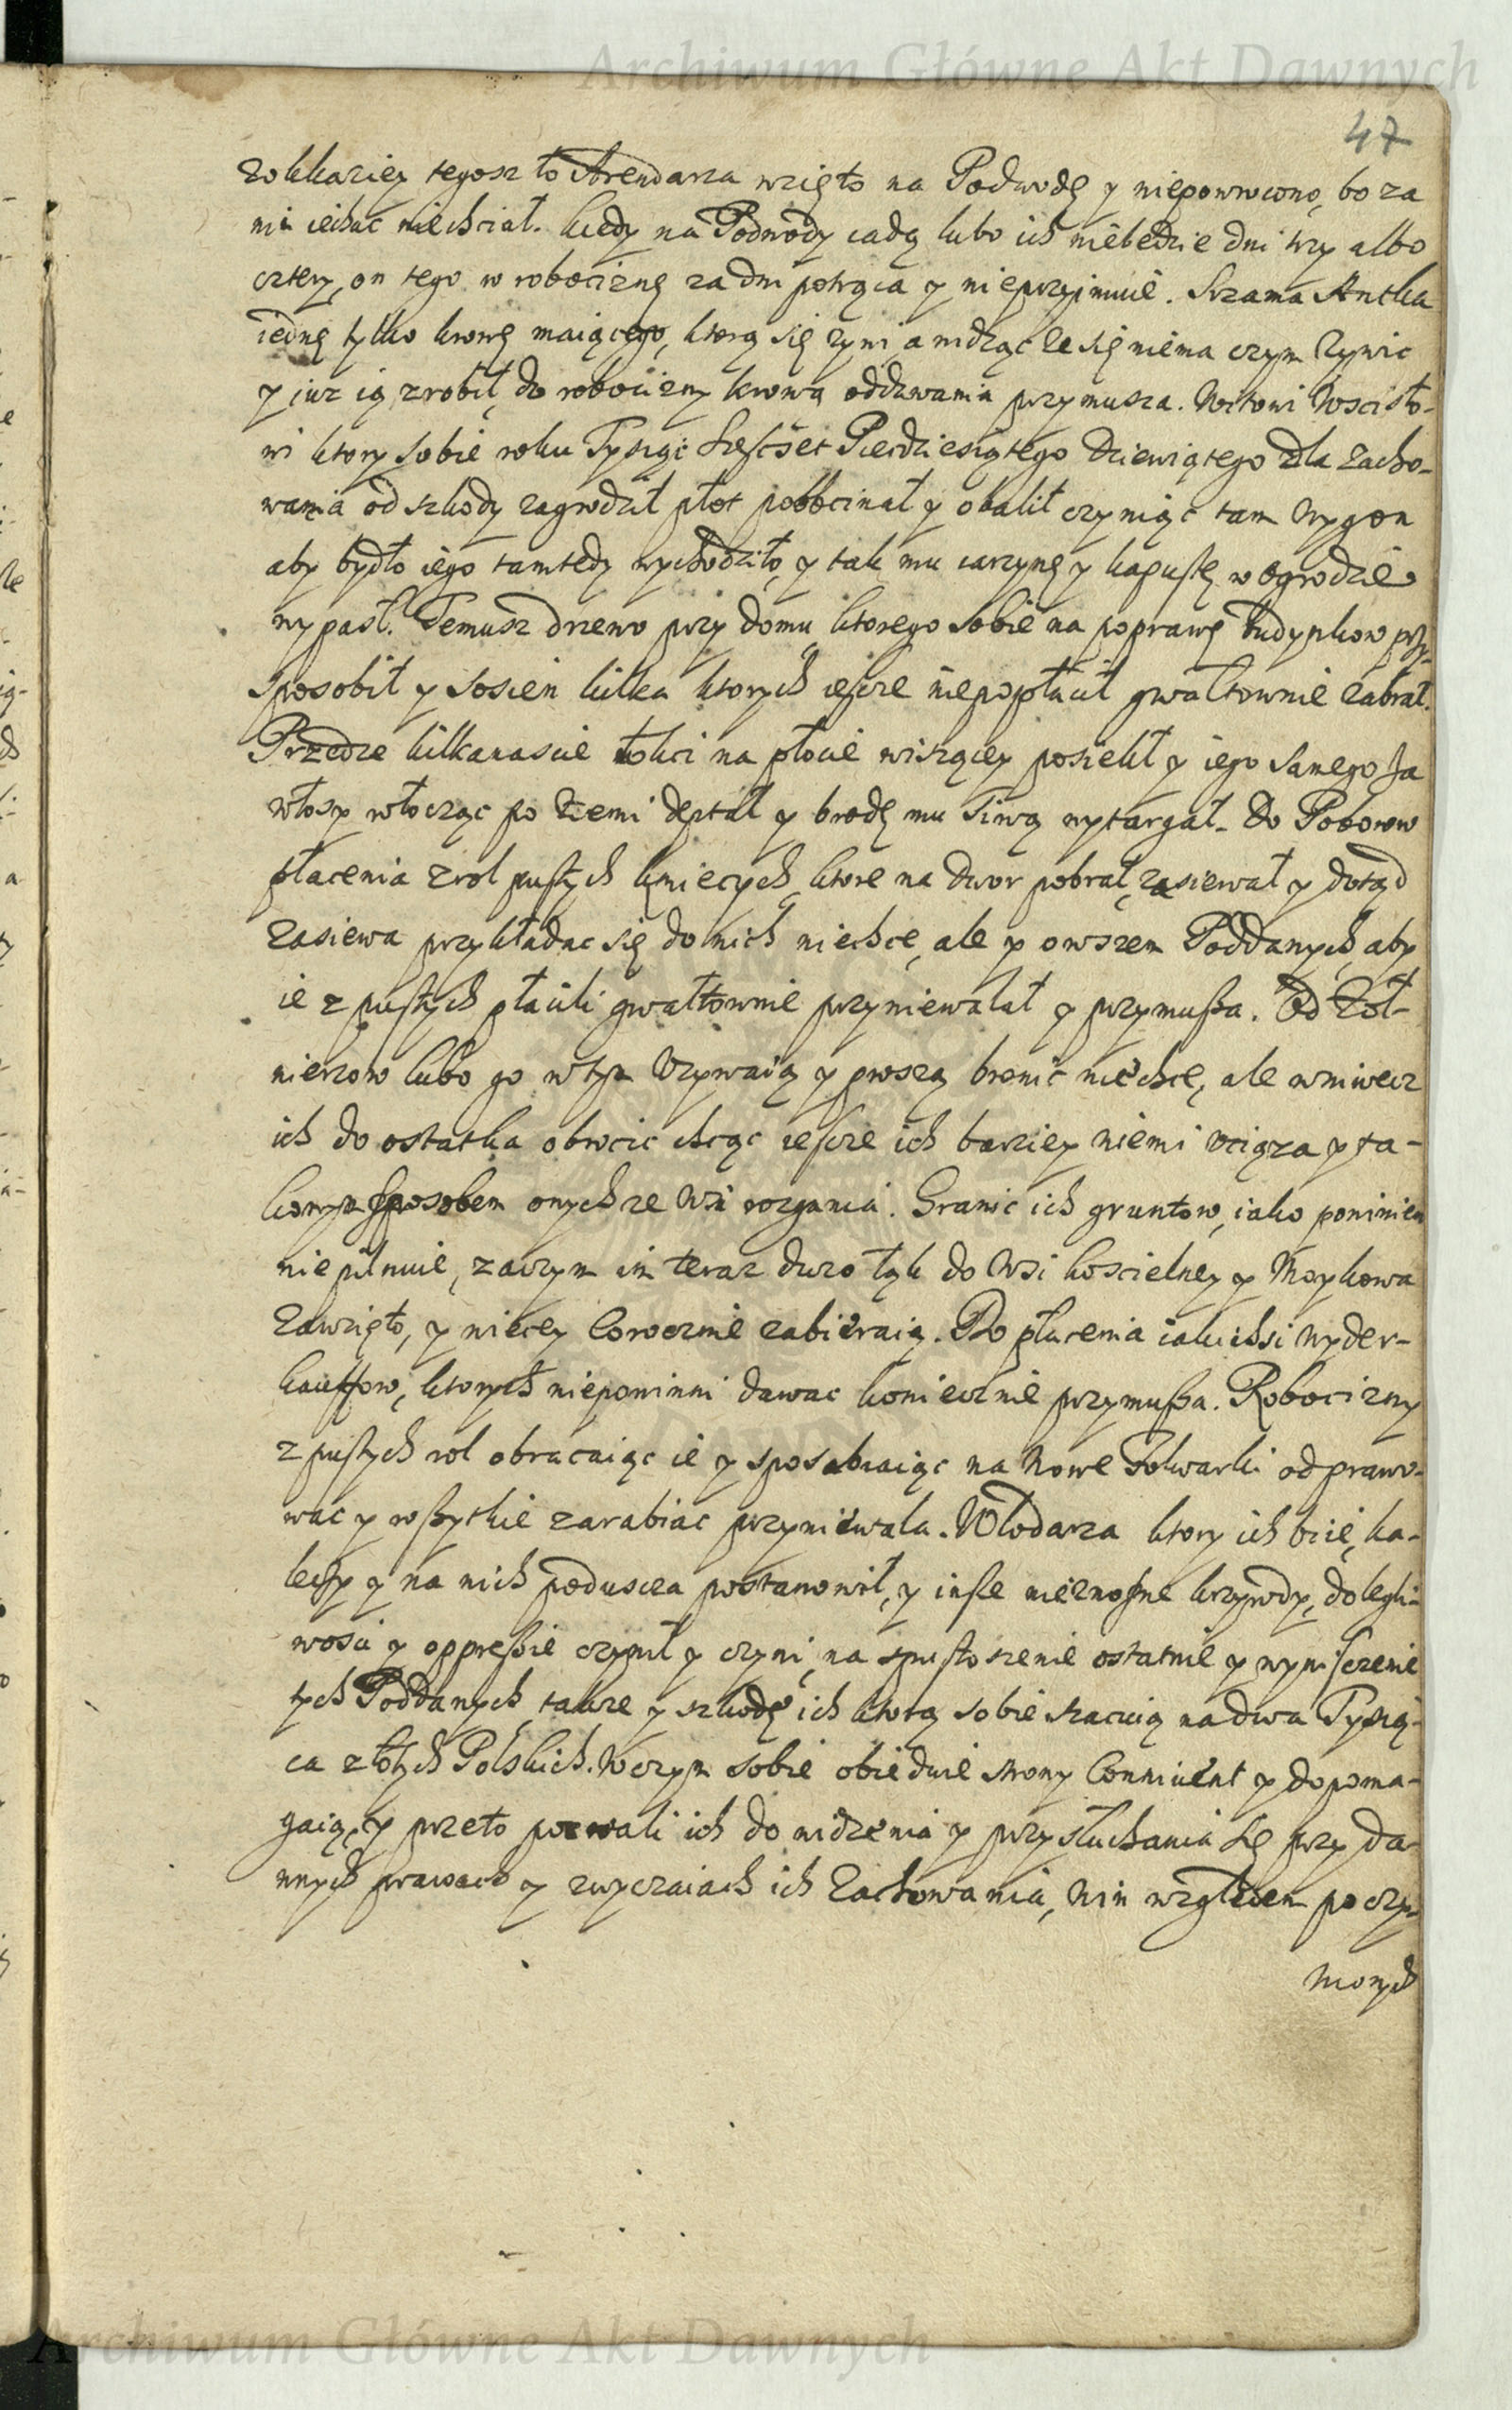 Archiwum Główne Akt Dawnych
47
zokkaziey tegosz to Arendarza wzięto na Podwodę y niepowrocono, bo za
nią iechać niechciał. kiedy na Podwody iadą lubo ich niebędzie dni trzy albo
cztery, on tego w robociznę za dni potrąca y nieprzyimuie. Szama Antka
iednę tylko krowę maiącego, ktorą się zywi, a widząc ze się niema czym zywic
y iuz ią zrobił, do robocizny krową oddawania przymusza. Witowi Wscisło-
wi ktory sobie roku Tysiąc Szescset Piecdziesiątego Dziewiątego dla zacho-
wania od szkody zagrodził płot poobcinał y obalił czyniąc tam Wygon
aby bydło iego tamtedy wychodziło, y tak mu iarzynę y kapustę w ogrodzie
wypasł. Temusz drzewo przy domu ktorego sobie na poprawę budynkow przy-
sposobił y sosien kilka ktorych iescze niepopłacił gwałtownie zabrał.
Przędze kilkanascie łokci na płocie wiszącey posiekł y iego samego za
włosy włocząc po ziemi deptał y brodę mu siwą wytargał. Do Poborow
płacenia zrol pustych kmiecych, ktore na dwor pobrał, zasiewał y dotąd
zasiewa przykładac się do nich niechce, ale y owszem Poddanych, aby
ie z pustych płacili gwałtownie przyniewalał y przymusza. Od Zoł-
nierzow lubo go w tym Vzywaią y proszą bronic niechce, ale wniwecz
ich do ostatka obrocic chcąc iescze ich barziey niemi vciąza y ta-
kowym sposobem onych ze Wsi rozgania. Granic ich gruntow, iako powinien
niepilnuie, zaczym im teraz duzo łąk do Wsi koscielney y Moykowa
zawzięto, y więcey Corocznie zabieraią. Do płacenia iakichsi wyder-
kauffow, ktorych niepowinni dawac koniecznie przymusza. Robocizny
z pustych rol obracaiąc ie y sposabiaiąc na nowe Folwarki odprawo-
wac y wszytkie zarabiac przyniewala. Włodarza ktory ich biie, ka-
leczy y na nich poduscza postanowił, y insze nieznosne krzywdy, dolegli-
wosci y oppressie czynił y czyni, na spustoszenie ostatnie y wyniszczenie
tych Poddanych, takze y szkodę ich ktorą sobie szacuią na dwa Tysią-
ca złotych Polskich. Wczym sobie obiedwie strony Conniuent y dopoma-
gaią, y przeto pozwali ich do widzenia y przysłuchania się przy da-
wnych prawach y zwyczaiach ich Zachowania, Win względem poczy-
nionych
Archiwum Główne Akt Dawnych